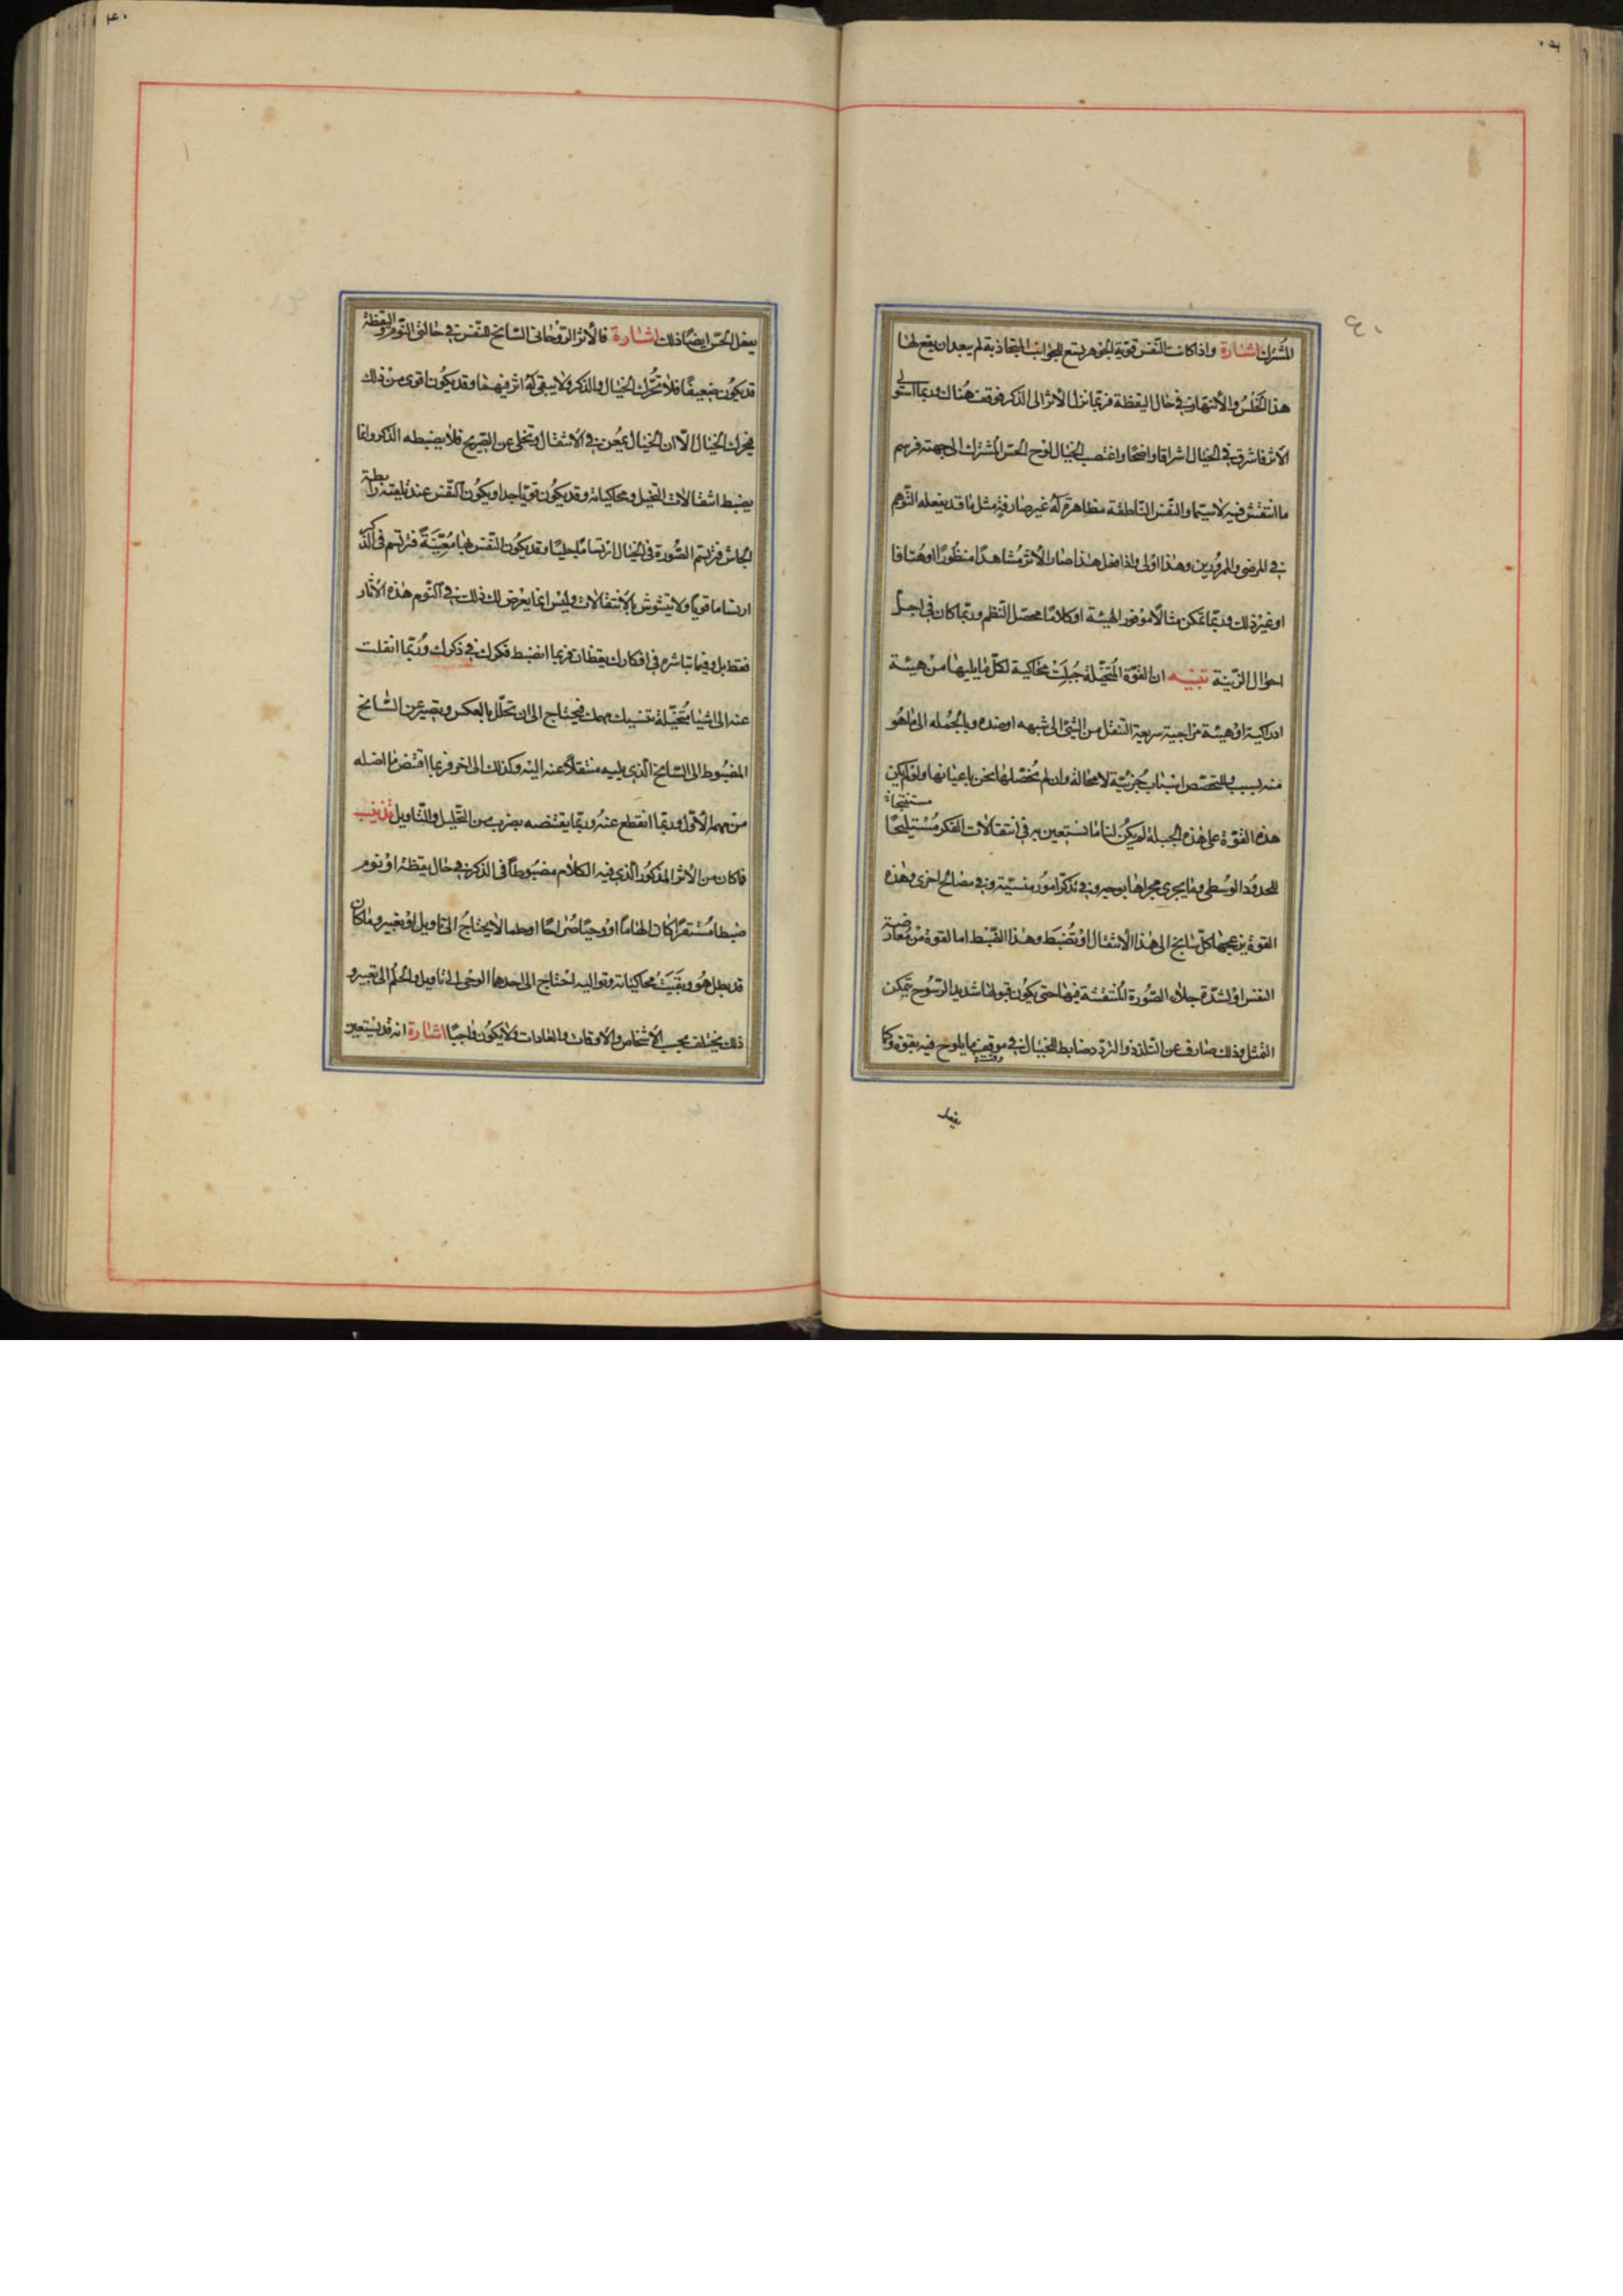 المشترك اشارة واذا كانت النفس قوية الجوهر يتسع للجوانب المتجاذبة لم يبعد ان يقع لها
هذا الخلس والانتهاز في حال اليقظة فربما نزل الاثر الى الذكر فوقف هناك وربما استولى
الاثر فاشرق في الخيال اشراقا واضحا واغتصب الخيال لوح الحس المشترك الى جهته فرسم
ما انتقش فيه لاسيما والنفس الناطقة مظاهرة له غير صارفة مثل ما قد يفعله التوهم
في المرضى والممرورين وهذا اولى واذا فعل هذا صار الاثر مشاهدا منظورا او هتافا
او غير ذلك وربما تمكن مثالا موفور الهيئة او كلاما محصل النظم وربما كان في اجل
احوال الزينة تنبيه ان القوة المتخيلة جبلت محاكية لكل ما يليها من هيئة
ادراكية او هيئة مزاجية سريعة التنقل من الشئ الى شبهه او ضده وبالجملة الى ما هو
منه بسبب وللتخصص اسباب جزئية لا محالة وان لم نحصلها نحن باعيانها ولو لم يكن
هذه القوة على هذه الجبلة لم يكن لنا ما نستعين به في انتقالات الفكر مستنتجا
للحدود الوسطى وما يجري مجراها بوجه وفي تذكر امور منسية وفي مصالح اخرى وهذه
القوة يزعجها كل سانح الى هذا الانتقال او تضبط وهذا الضبط اما لقوة من معارضة
النفس او لشدة جلاء الصورة المنتقشة فيها حتى يكون قبولها شديد الرسوح متمكن
التمثل وذلك صارف عن التلدد والتردد ضابط للخيال في موقف ما يلوح فيه بقوة وكما
يفعل
يفعل الحس ايضا ذلك اشارة فالاثر الروحاني السانح للنفس في حالتي النوم واليقظة
قد يكون ضعيفا فلا تحرك الخيال والذكر ولا يبقى له اثر فيهما وقد يكون اقوى من ذلك
فيحرك الخيال الا ان الخيال يمعن في الانتقال ويخلى عن الصريح فلا يضبطه الذكر وانما
يضبط انتقالات التخيل ومحاكياته وقد يكون قويا جدا ويكون النفس عند تلقيه رابطة
الجاش فترتسم الصورة في الخيال ارتساما جليا وقد يكون النفس لها معينة فترتسم في الذكر
ارتساما قويا ولا يتشوش بالانتقالات وليس انما يعرض لك ذلك في النوم هذه الاثار
فقط بل وفيما تباشره في افكارك يقظان فربما انضبط فكرك في ذكرك وربما انقلت
عنه الى اشيا متخيلة تنسيك مهمك فيحتاج الى ان تحلل بالعكس ويصير عن السانح
المضبوط الى السانح الذي يليه منتقلا عنه اليه وكذلك الى اخر فربما اقتنص ما اضله
من مهمه الاول وربما انقطع عنه وربما يقتنصه بضرب من التحليل والتاويل تذنيب
فما كان من الاثر المذكور الذي فيه الكلام مضبوطا في الذكر في حال يقظة او نوم
ضبطا مستقرا كان الهاما او وحيا صراحا او حلما لا يحتاج الى تاويل او تعبير وما كان
قد بطل هو وبقيت محاكياته وتواليه احتاج الى احدهما الوحى الى تاويل والحلم الى تعبير و
ذلك يختلف بحسب الاشخاص والاوقات والعادات ولا يكون واجبا اشارة انه قد يستعين